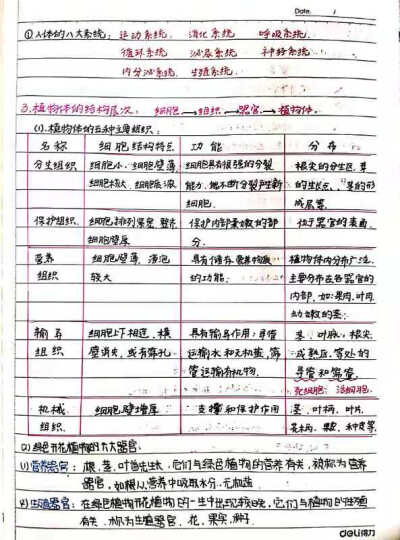 Date.
①人体的八大系统：运动系统、消化系统 呼吸系统.
循环系统 泌尿系统 神经系统
内分泌系统. 生殖系统.
3.植物体的结构层次： 细胞→组织→器官→植物体.
(1).植物体的五种主要组织：
名称 细胞结构特点 功能 分布
分生组织 细胞小、细胞壁薄 细胞具有很强的分裂 根尖的分生区、茎
细胞核大、细胞质浓 能力，能不断分裂产生新 的生长点、茎的形
细胞. 成层等.
保护组织. 细胞排列紧密 整齐 保护内部柔嫩的部 位于器官的表面.
细胞壁厚 分.
营养 细胞壁薄，液泡 具有储存营养物质 植物体内分布广泛.
组织 较大 的功能. 主要分布在各器官的
内部，如：果肉、叶肉
幼嫩的茎.
输导 细胞上下相连，横 具有输导作用：导管 茎、叶脉、根尖
组织 壁消失，或有筛孔. 运输水和无机盐，筛 成熟区等处的
管运输有机物. 导管和筛管.
死细胞 活细胞.
机械 细胞壁增厚 支撑和保护作用 茎、叶柄、叶片
组织. 花柄、果皮、种皮等.
(2)绿色开花植物的六大器官：
①营养器官：根、茎、叶 它们与绿色植物的营养有关，被称为营养
器官，如根从营养中吸取水分、无机盐.
②生殖器官：在绿色植物开花植物的一生中出现较晚，它们与植物的生殖
有关，称为生殖器官. 花、果实、种子.
deli得力